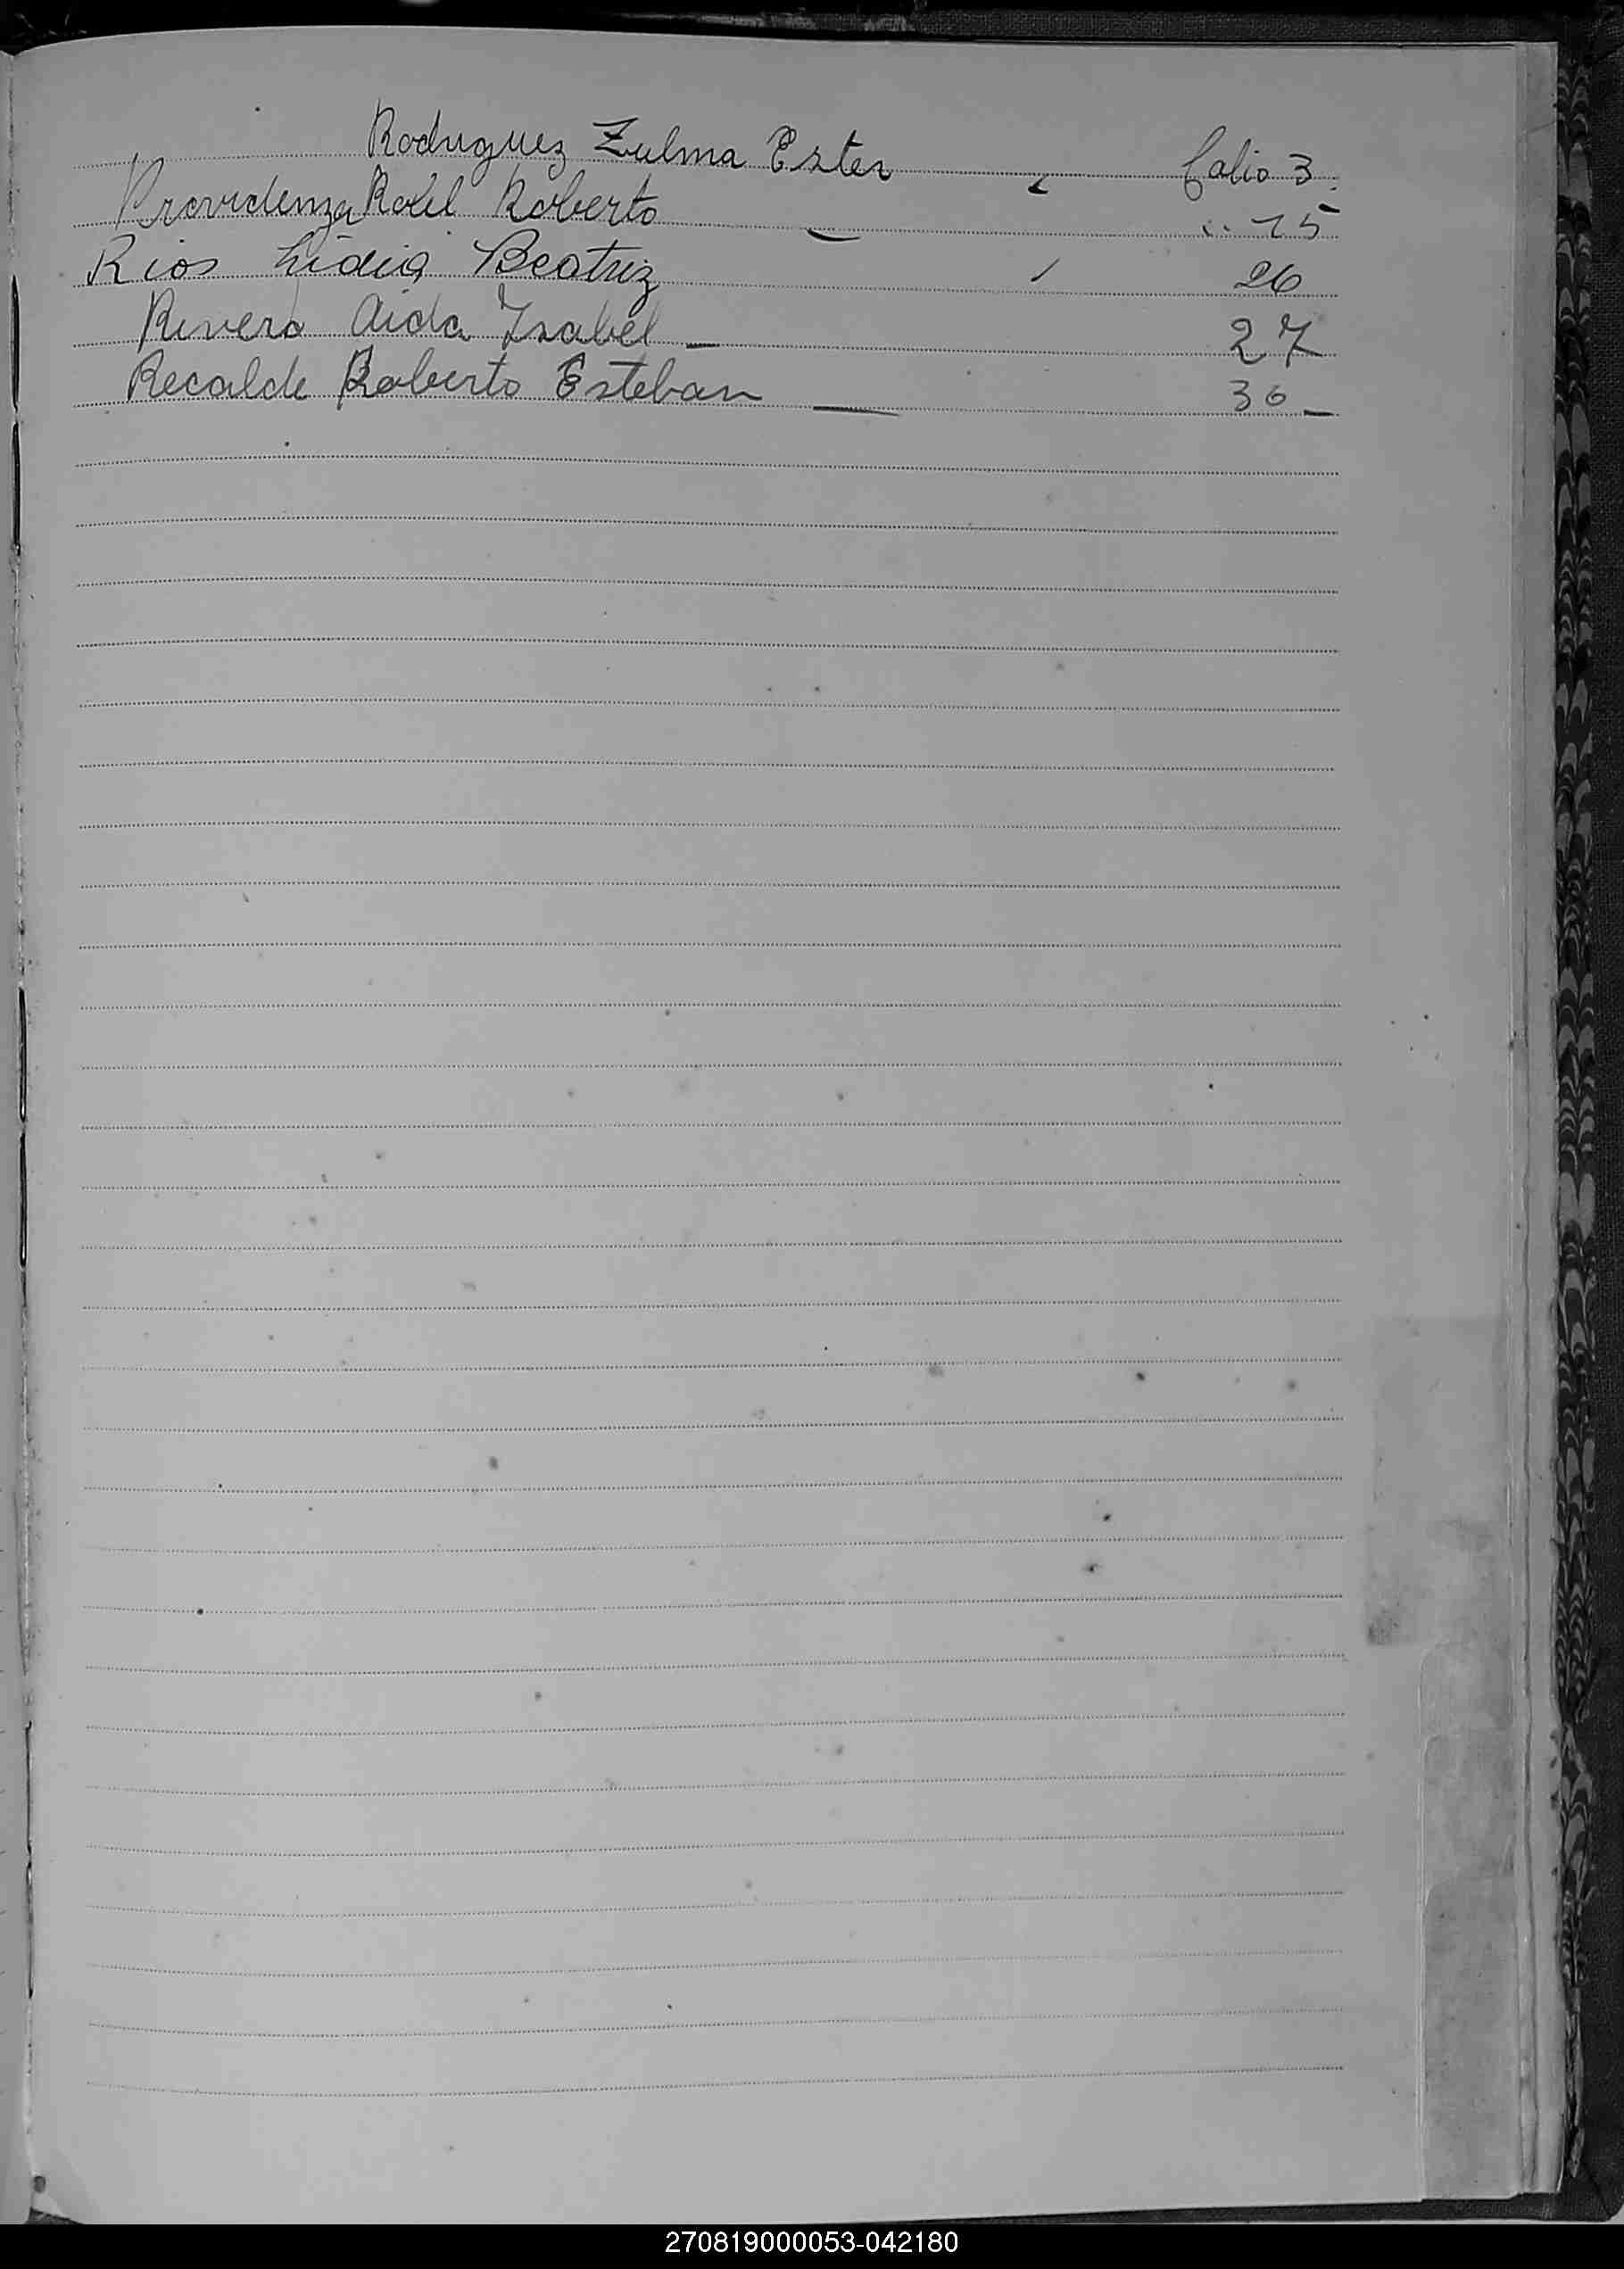 Rodriguez Zulma Ester folio 3.
Providenza Raúl Roberto — " 15
Rios Lidia Beatriz 26
Rivero Aida Isabel — 27
Recalde Roberto Esteban — 30 —
270819000053-042180